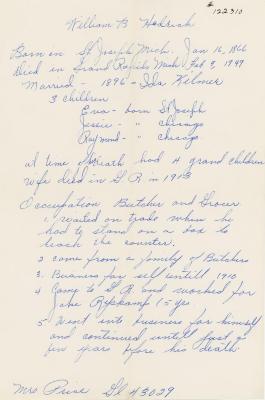 #122310
William B Hedrick
Born in St Joseph Mich. Jan 16, 1866
Died in Grand Rapids Mich Feb 3, 1949
Married - 1896 - Ida Kilmer
3 children
Eva - born St Joseph
Jessie - " Chicago
Raymond - " Chicago
at time of death had 4 grand children
wife died in G R in 1913
Occupation Butcher and Grocer
1. waited on trade when he
had to stand on a box to
reach the counter.
2 came from a family of Butchers
3. Business for self untill 1910
4 Came to G. R. and worked for
Jake 15 yrs
5 Went into business for himself
and continued untill just a
few years before his death
Mrs Price Gl 43029